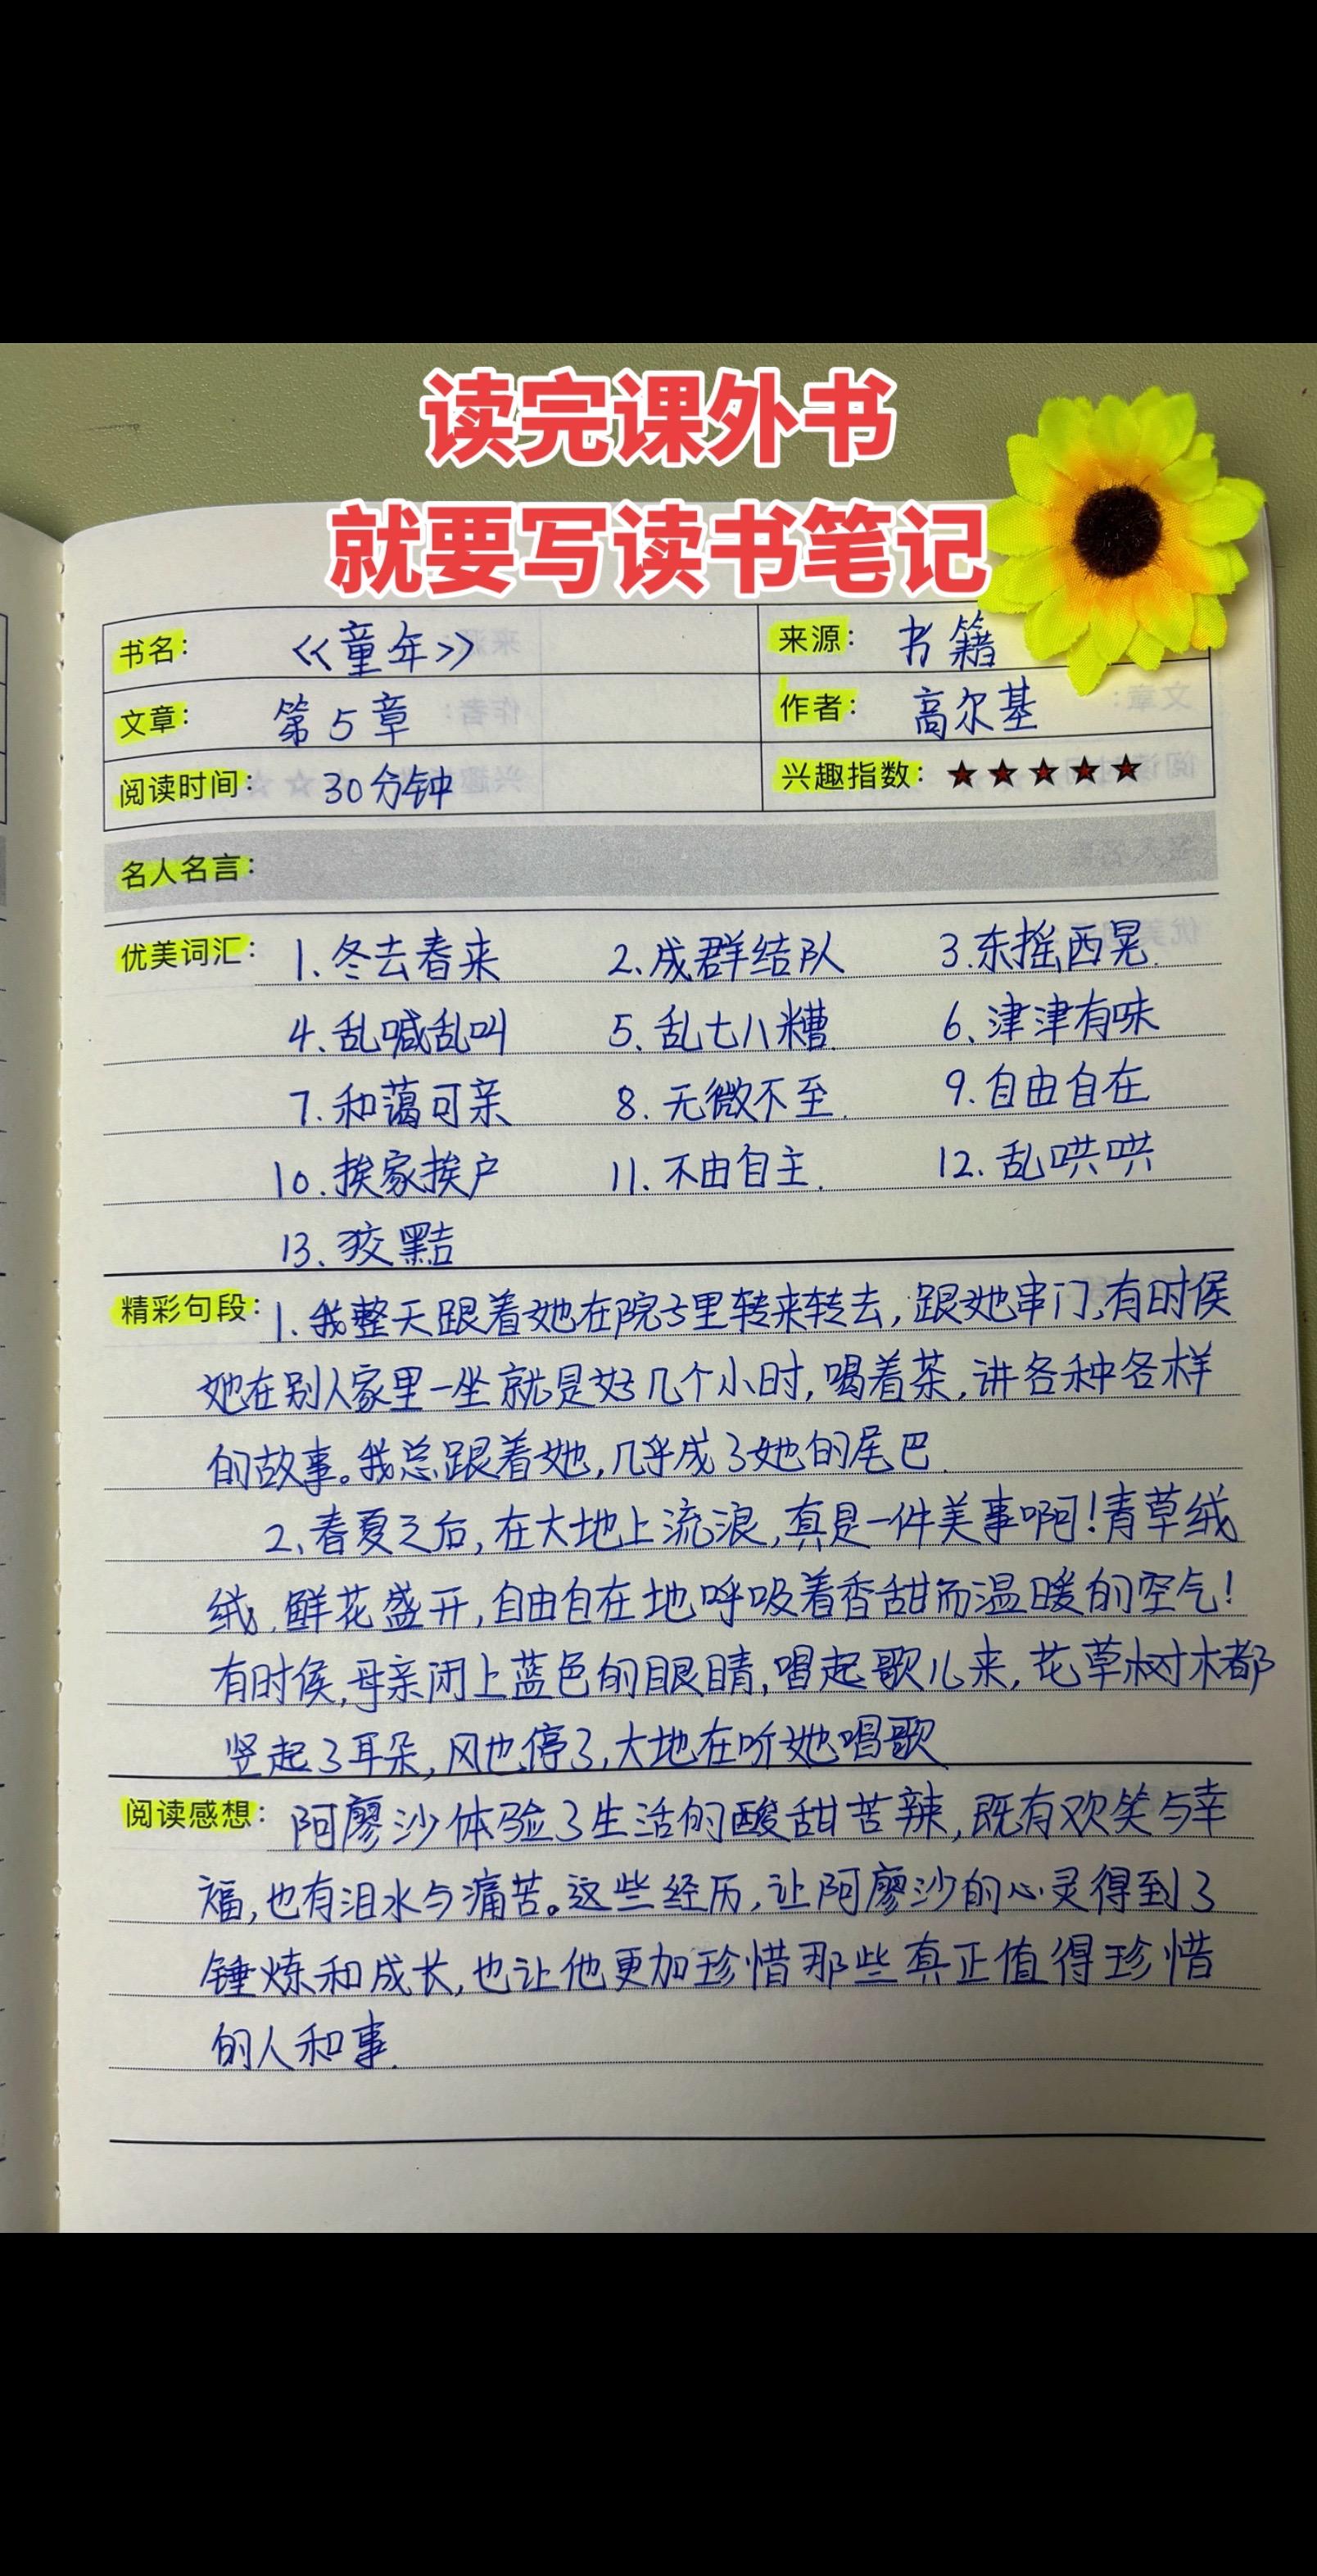 读完课外书
就要写读书笔记
书名: 《童年》 来源: 书籍
文章: 第5章 作者: 高尔基
阅读时间: 30分钟 兴趣指数: ★★★★★
名人名言:
优美词汇: 1.冬去春来 2、成群结队 3.东摇西晃.
4、乱喊乱叫 5、乱七八糟. 6、津津有味
7.和蔼可亲 8.无微不至. 9.自由自在
10.挨家挨户 11.不由自主. 12.乱哄哄
13、狡黠
精彩句段: 1.我整天跟着她在院子里转来转去,跟她串门,有时候
她在别人家里一坐就是好几个小时,喝着茶,讲各种各样
的故事。我总跟着她,几乎成了她的尾巴.
2、春夏之后,在大地上流浪,真是一件美事啊!青草绒
绒,鲜花盛开,自由自在地呼吸着香甜而温暖的空气!
有时候,母亲闭上蓝色的眼睛,唱起歌儿来,花草树木都
竖起了耳朵,风也停了,大地在听她唱歌
阅读感想: 阿廖沙体验了生活的酸甜苦辣,既有欢笑与幸
福,也有泪水与痛苦。这些经历,让阿廖沙的心灵得到了
锤炼和成长,也让他更加珍惜那些真正值得珍惜
的人和事.